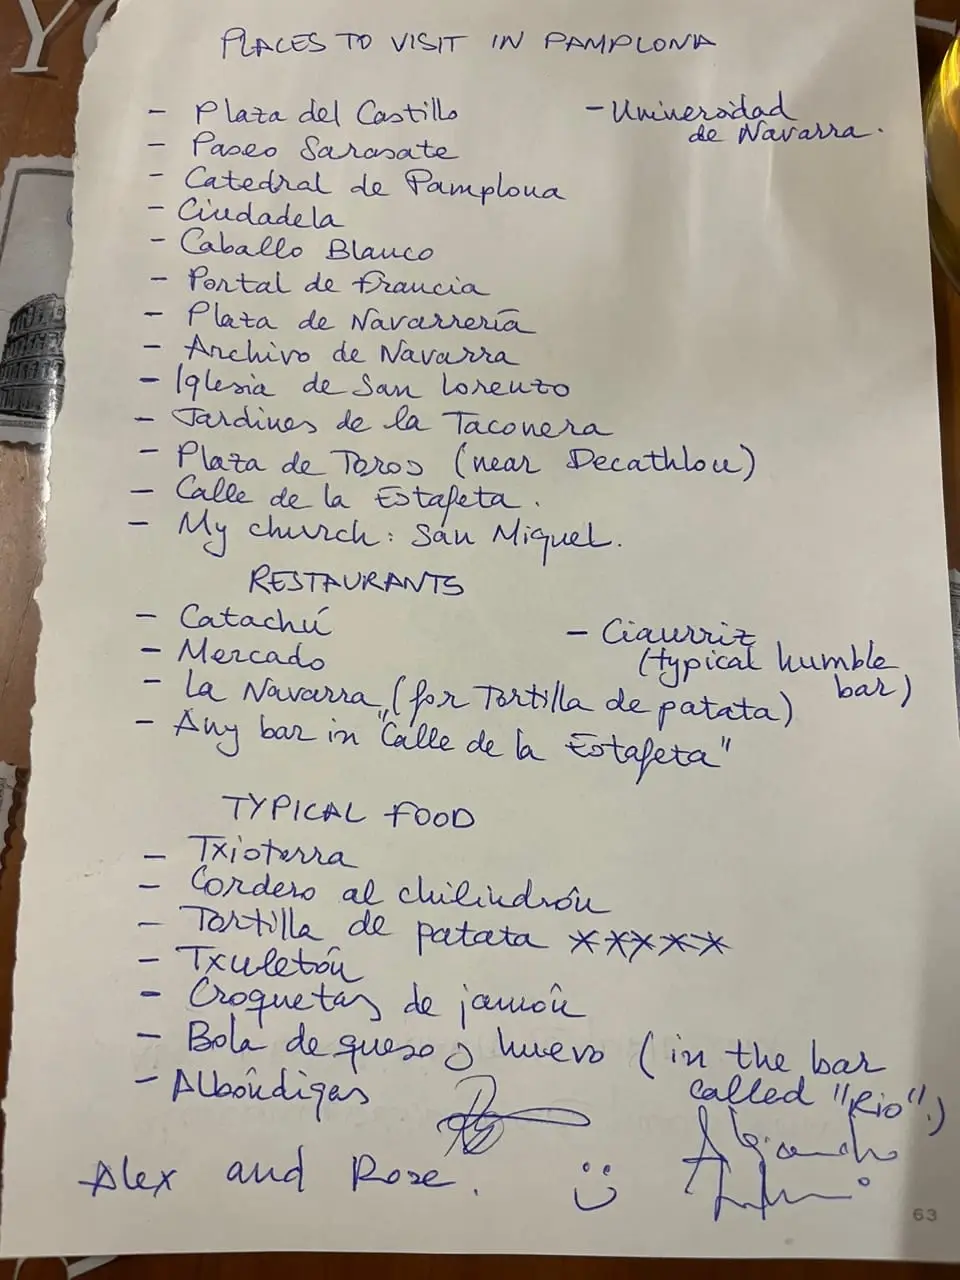 PLACES TO VISIT IN PAMPLONA
- Plaza del Castillo
- Universidad
de Navarra.
- Paseo Sarasate
- Catedral de Pamplona
- Ciudadela
- Caballo Blanco
- Portal de Francia
- Plaza de Navarrería
- Archivo de Navarra
- Iglesia de San Lorenzo
- Jardines de la Taconera
- Plaza de Toros (near Decathlon)
- Calle de la Estafeta.
- My church: San Miguel.
RESTAURANTS
- Catachú
- Ciaurriz
(typical humble
bar)
- Mercado
- La Navarra (for Tortilla de patata)
- Any bar in "Calle de la Estafeta"
TYPICAL FOOD
- Txistorra
- Cordero al chilindrón
- Tortilla de patata *****
- Txuletón
- Croquetas de jamón
- Bola de queso y huevo (in the bar
called "Río".)
- Albóndigas
Alex and Rose.
63